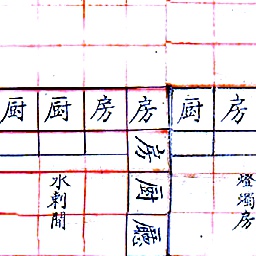 厨 厨 房 房 厨 房
房
厨
廳
水剌間
燈燭房